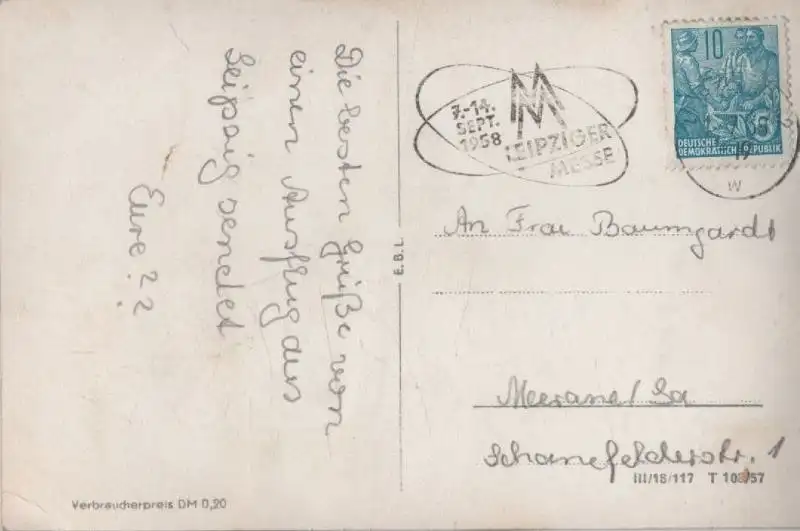 Die besten Grüße von
einen Ausflug aus
Leipzig sendet
Eure ? ?
7.-14.
SEPT.
1958
LEIPZIGER
MESSE
10
5
DEUTSCHE
DEMOKRATISCHE REPUBLIK
W
An Frau Baumgardt
E.B.L.
Meerane/Sa
Schönefelderstr. 1
III/18/117 T 108/57
Verbraucherpreis DM 0,20